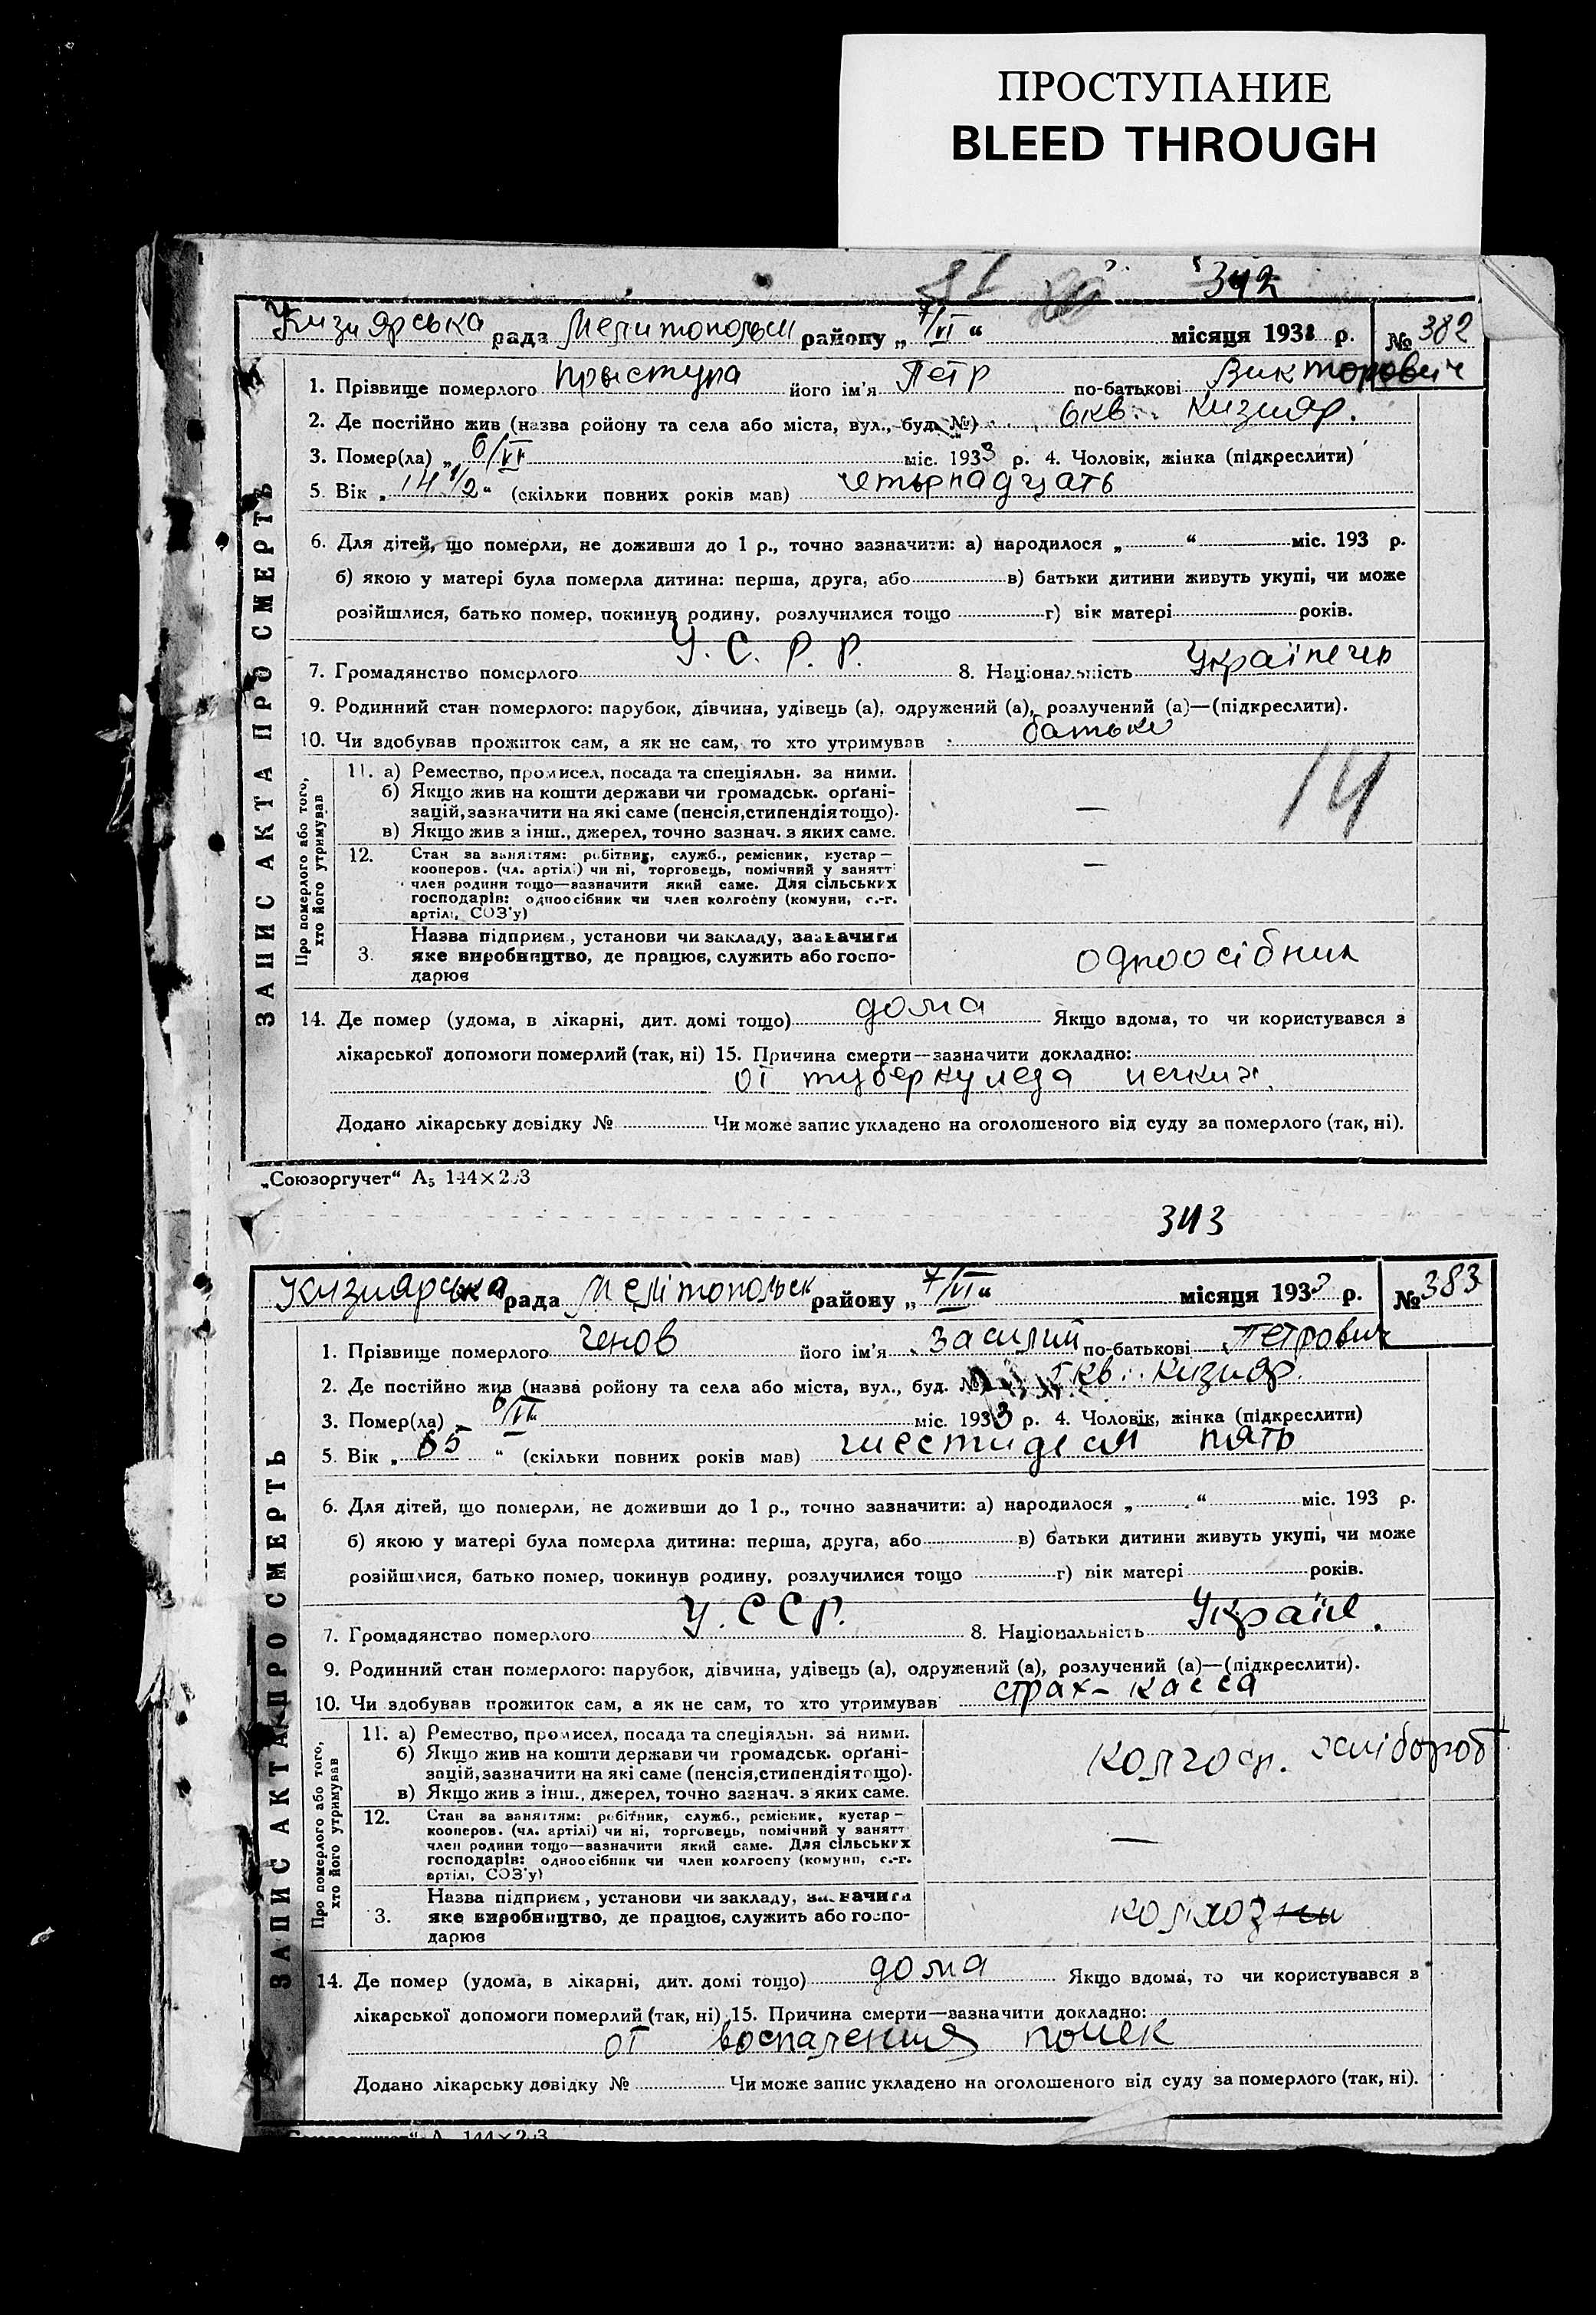 ПРОСТУПАНИЕ
BLEED THROUGH
342
Кизиярська рада Мелитопольск району „ 7/VI “ місяця 1933 р. № 382
ЗАПИС АКТА ПРО СМЕРТЬ
1. Прізвище померлого Прыступа його ім'я Петр по-батькові Викторович
2. Де постійно жив (назва ройону та села або міста, вул., буд. №) 6 кв. Кизияр.
3. Помер(ла) „ 6/VI міс. 1933 р. 4. Чоловік, жінка (підкреслити)
5. Вік „ 14 1/2 “ (скільки повних років мав) четырнадцать
6. Для дітей, що померли, не доживши до 1 р., точно зазначити: а) народилося „ “ міс. 193 р.
б) якою у матері була померла дитина: перша, друга, або в) батьки дитини живуть укупі, чи може
розійшлися, батько помер, покинув родину, розлучилися тощо г) вік матері років.
7. Громадянство померлого У. С. Р. Р. 8. Національність Українець
9. Родинний стан померлого: парубок, дівчина, удівець (а), одружений (а), розлучений (а)—(підкреслити).
10. Чи здобував прожиток сам, а як не сам, то хто утримував батьки
Про померлого або того, хто його утримував
11. а) Ремество, промисел, посада та спеціяльн. за ними.
б) Якщо жив на кошти держави чи громадськ. орґані-
зацій, зазначити на які саме (пенсія, стипендія тощо).
в) Якщо жив з інш., джерел, точно зазнач. з яких саме.
— 14
12. Стан за заняттям: робітник, служб., ремісник, кустар—
кооперов. (чл. артілі) чи ні, торговець, помічний у занятті
член родини тощо—зазначити який саме. Для сільських
господарів: одноосібник чи член колгоспу (комуни, с.-г.
артілі, СОЗ'у)
—
3. Назва підприєм., установи чи закладу, зазначити
яке виробництво, де працює, служить або госпо-
дарює
одноосібник
14. Де помер (удома, в лікарні, дит. домі тощо) дома Якщо вдома, то чи користувався з
лікарської допомоги померлий (так, ні) 15. Причина смерти—зазначити докладно:
от туберкулеза
Додано лікарську довідку № Чи може запис укладено на оголошеного від суду за померлого (так, ні).
„Союзоргучет“ А5 144×203
343
Кизиярська рада Мелітопольск району „ 7/VI “ місяця 1933 р. № 383
ЗАПИС АКТА ПРО СМЕРТЬ
1. Прізвище померлого Ченов його ім'я Василий по-батькові Петрович
2. Де постійно жив (назва ройону та села або міста, вул., буд. № кв. Кизияр.
3. Помер(ла) „ 6/VI міс. 1933 р. 4. Чоловік, жінка (підкреслити)
5. Вік „ 65 “ (скільки повних років мав) шестидесят пять
6. Для дітей, що померли, не доживши до 1 р., точно зазначити: а) народилося „ “ міс. 193 р.
б) якою у матері була померла дитина: перша, друга, або в) батьки дитини живуть укупі, чи може
розійшлися, батько помер, покинув родину, розлучилися тощо г) вік матері років.
7. Громадянство померлого У. С С Р. 8. Національність Україн.
9. Родинний стан померлого: парубок, дівчина, удівець (а), одружений (а), розлучений (а)—(підкреслити).
10. Чи здобував прожиток сам, а як не сам, то хто утримував страх-касса
Про померлого або того, хто його утримував
11. а) Ремество, промисел, посада та спеціяльн. за ними.
б) Якщо жив на кошти держави чи громадськ. орґані-
зацій, зазначити на які саме (пенсія, стипендія тощо).
в) Якщо жив з інш., джерел, точно зазнач. з яких саме.
колгосп. хлібороб
12. Стан за заняттям: робітник, служб., ремісник, кустар—
кооперов. (чл. артілі) чи ні, торговець, помічний у занятті
член родини тощо—зазначити який саме. Для сільських
господарів: одноосібник чи член колгоспу (комуни, с.-г.
артілі, СОЗ'у)
—
3. Назва підприєм., установи чи закладу, зазначити
яке виробництво, де працює, служить або госпо-
дарює
колхоз
14. Де помер (удома, в лікарні, дит. домі тощо) дома Якщо вдома, то чи користувався з
лікарської допомоги померлий (так, ні) 15. Причина смерти—зазначити докладно:
от воспаления почек
Додано лікарську довідку № Чи може запис укладено на оголошеного від суду за померлого (так, ні).
„Союзоргучет“ А 144×203